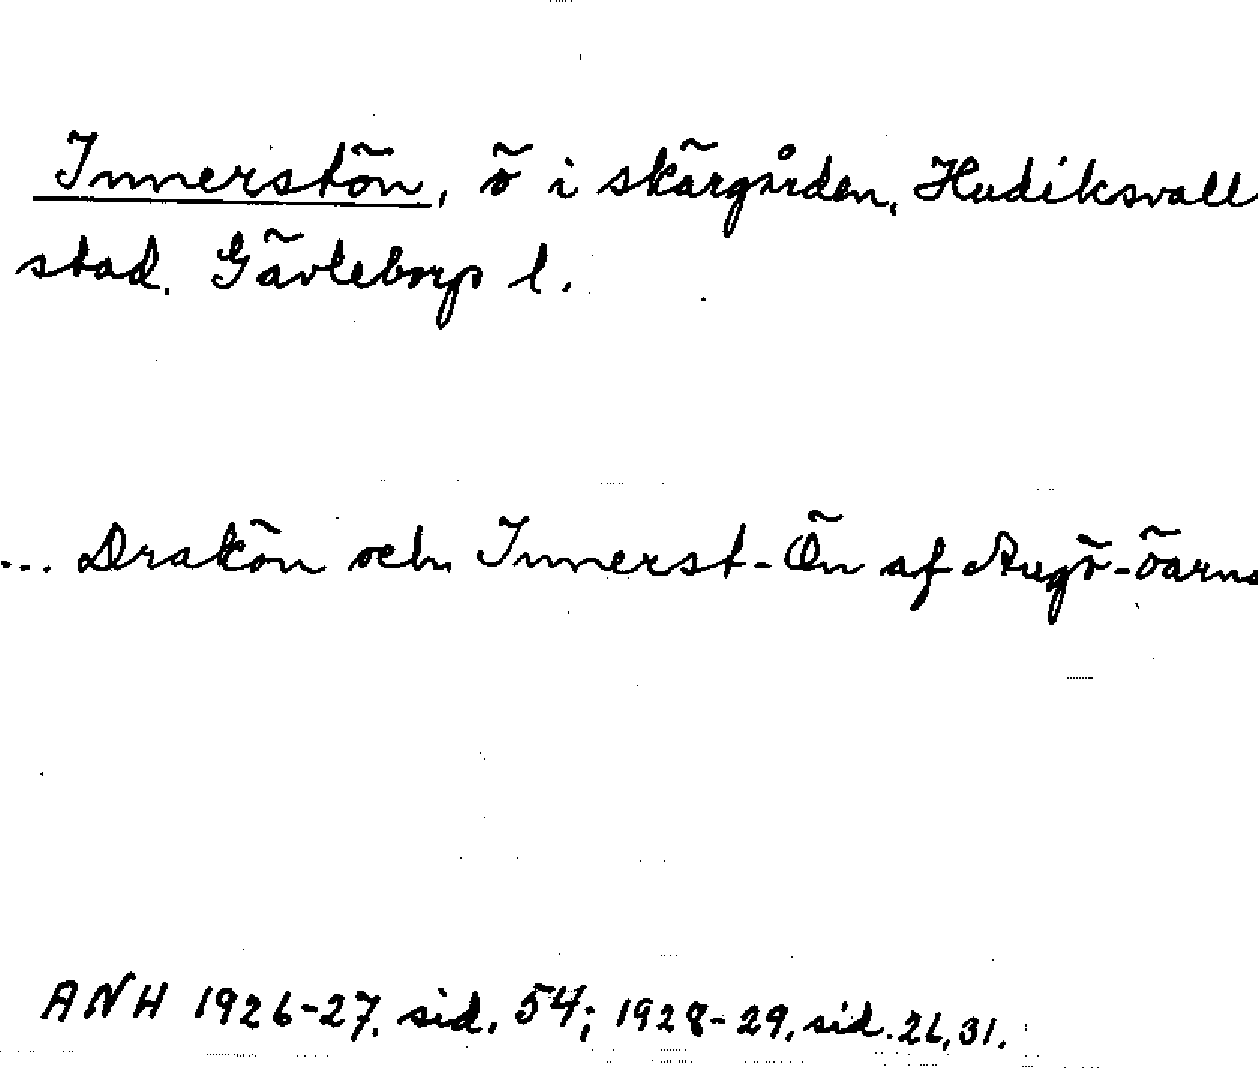 Innerstön, ö i skärgården, Hudiksvall
stad. Gävleborgs l.
... Drakön och Innerst-Ön af Augö-öarna
ANH 1926-27, sid. 54; 1928-29, sid. 26, 31.